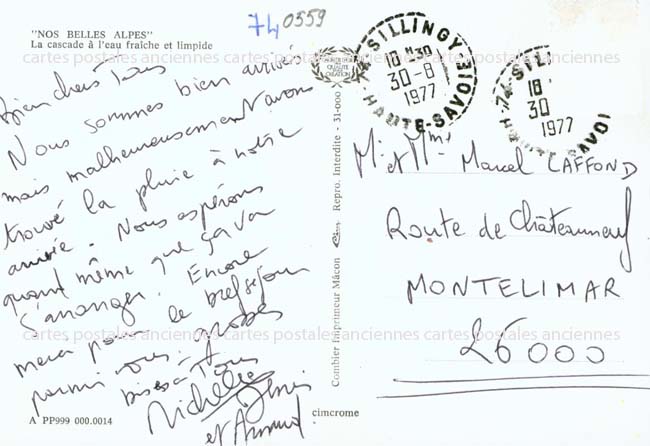 74 0559
"NOS BELLES ALPES"
La cascade à l'eau fraîche et limpide
cartes postales anciennes cartes postales anciennes cartes postales anciennes
Bien chers Tous
Nous sommes bien arrivés
mais malheureusement avons
trouvé la pluie à notre
arrivée. Nous espérons
quand même que ça va
s'arranger. Encore
merci pour le bref séjour
parmi vous. grosses
bises à Tous
Michelle
et Arnaud
A PP999 000.0014
Combier Imprimeur Mâcon
Repro. Interdite - 31-000
cimcrome
74-SILLINGY
18H30
30-8
1977
HAUTE-SAVOIE
74-SILL
18
30
1977
SAVOI
Mr et Mme Marcel LAFFOND
Route de Châteauneuf
MONTELIMAR
26000
cartes postales anciennes cartes postales anciennes cartes postales anciennes